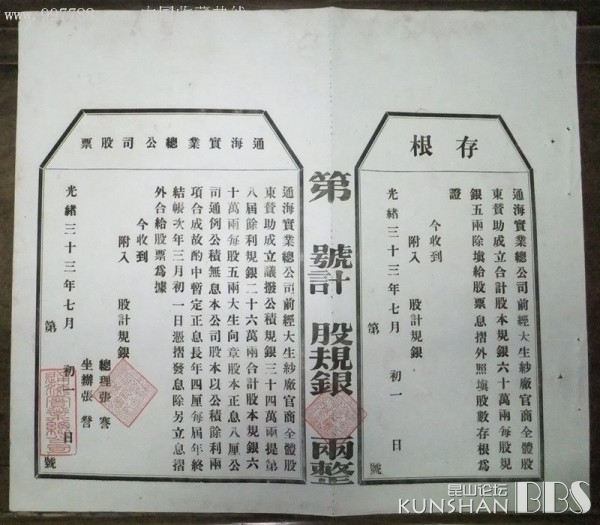 存根
通海實業總公司前經大生紗廠官商全體股
東贊助成立合計股本規銀六十萬兩每股規
銀五兩除填給股票息摺外照填股數存根爲
證
今收到
附入 股計規銀
光緒三十三年七月 初一 日
第 號
第 號計 股規銀 兩整
通海實業總公司股票
通海實業總公司前經大生紗廠官商全體股
東贊助成立議撥公積規銀三十四萬兩提第
八屆餘利規銀二十六萬兩合計股本規銀六
十萬兩每股五兩大生向章股本正息八厘公
司通例公積無息本公司股本以公積餘利兩
項合成故酌中暫定正息長年四厘每屆年終
結帳次年三月初一日憑摺發息除另立息摺
外合給股票爲據
今收到
附入 股計規銀
總理張謇
坐辦張詧
光緒三十三年七月 初一 日
第 號
昆山论坛
KUNSHAN BBS